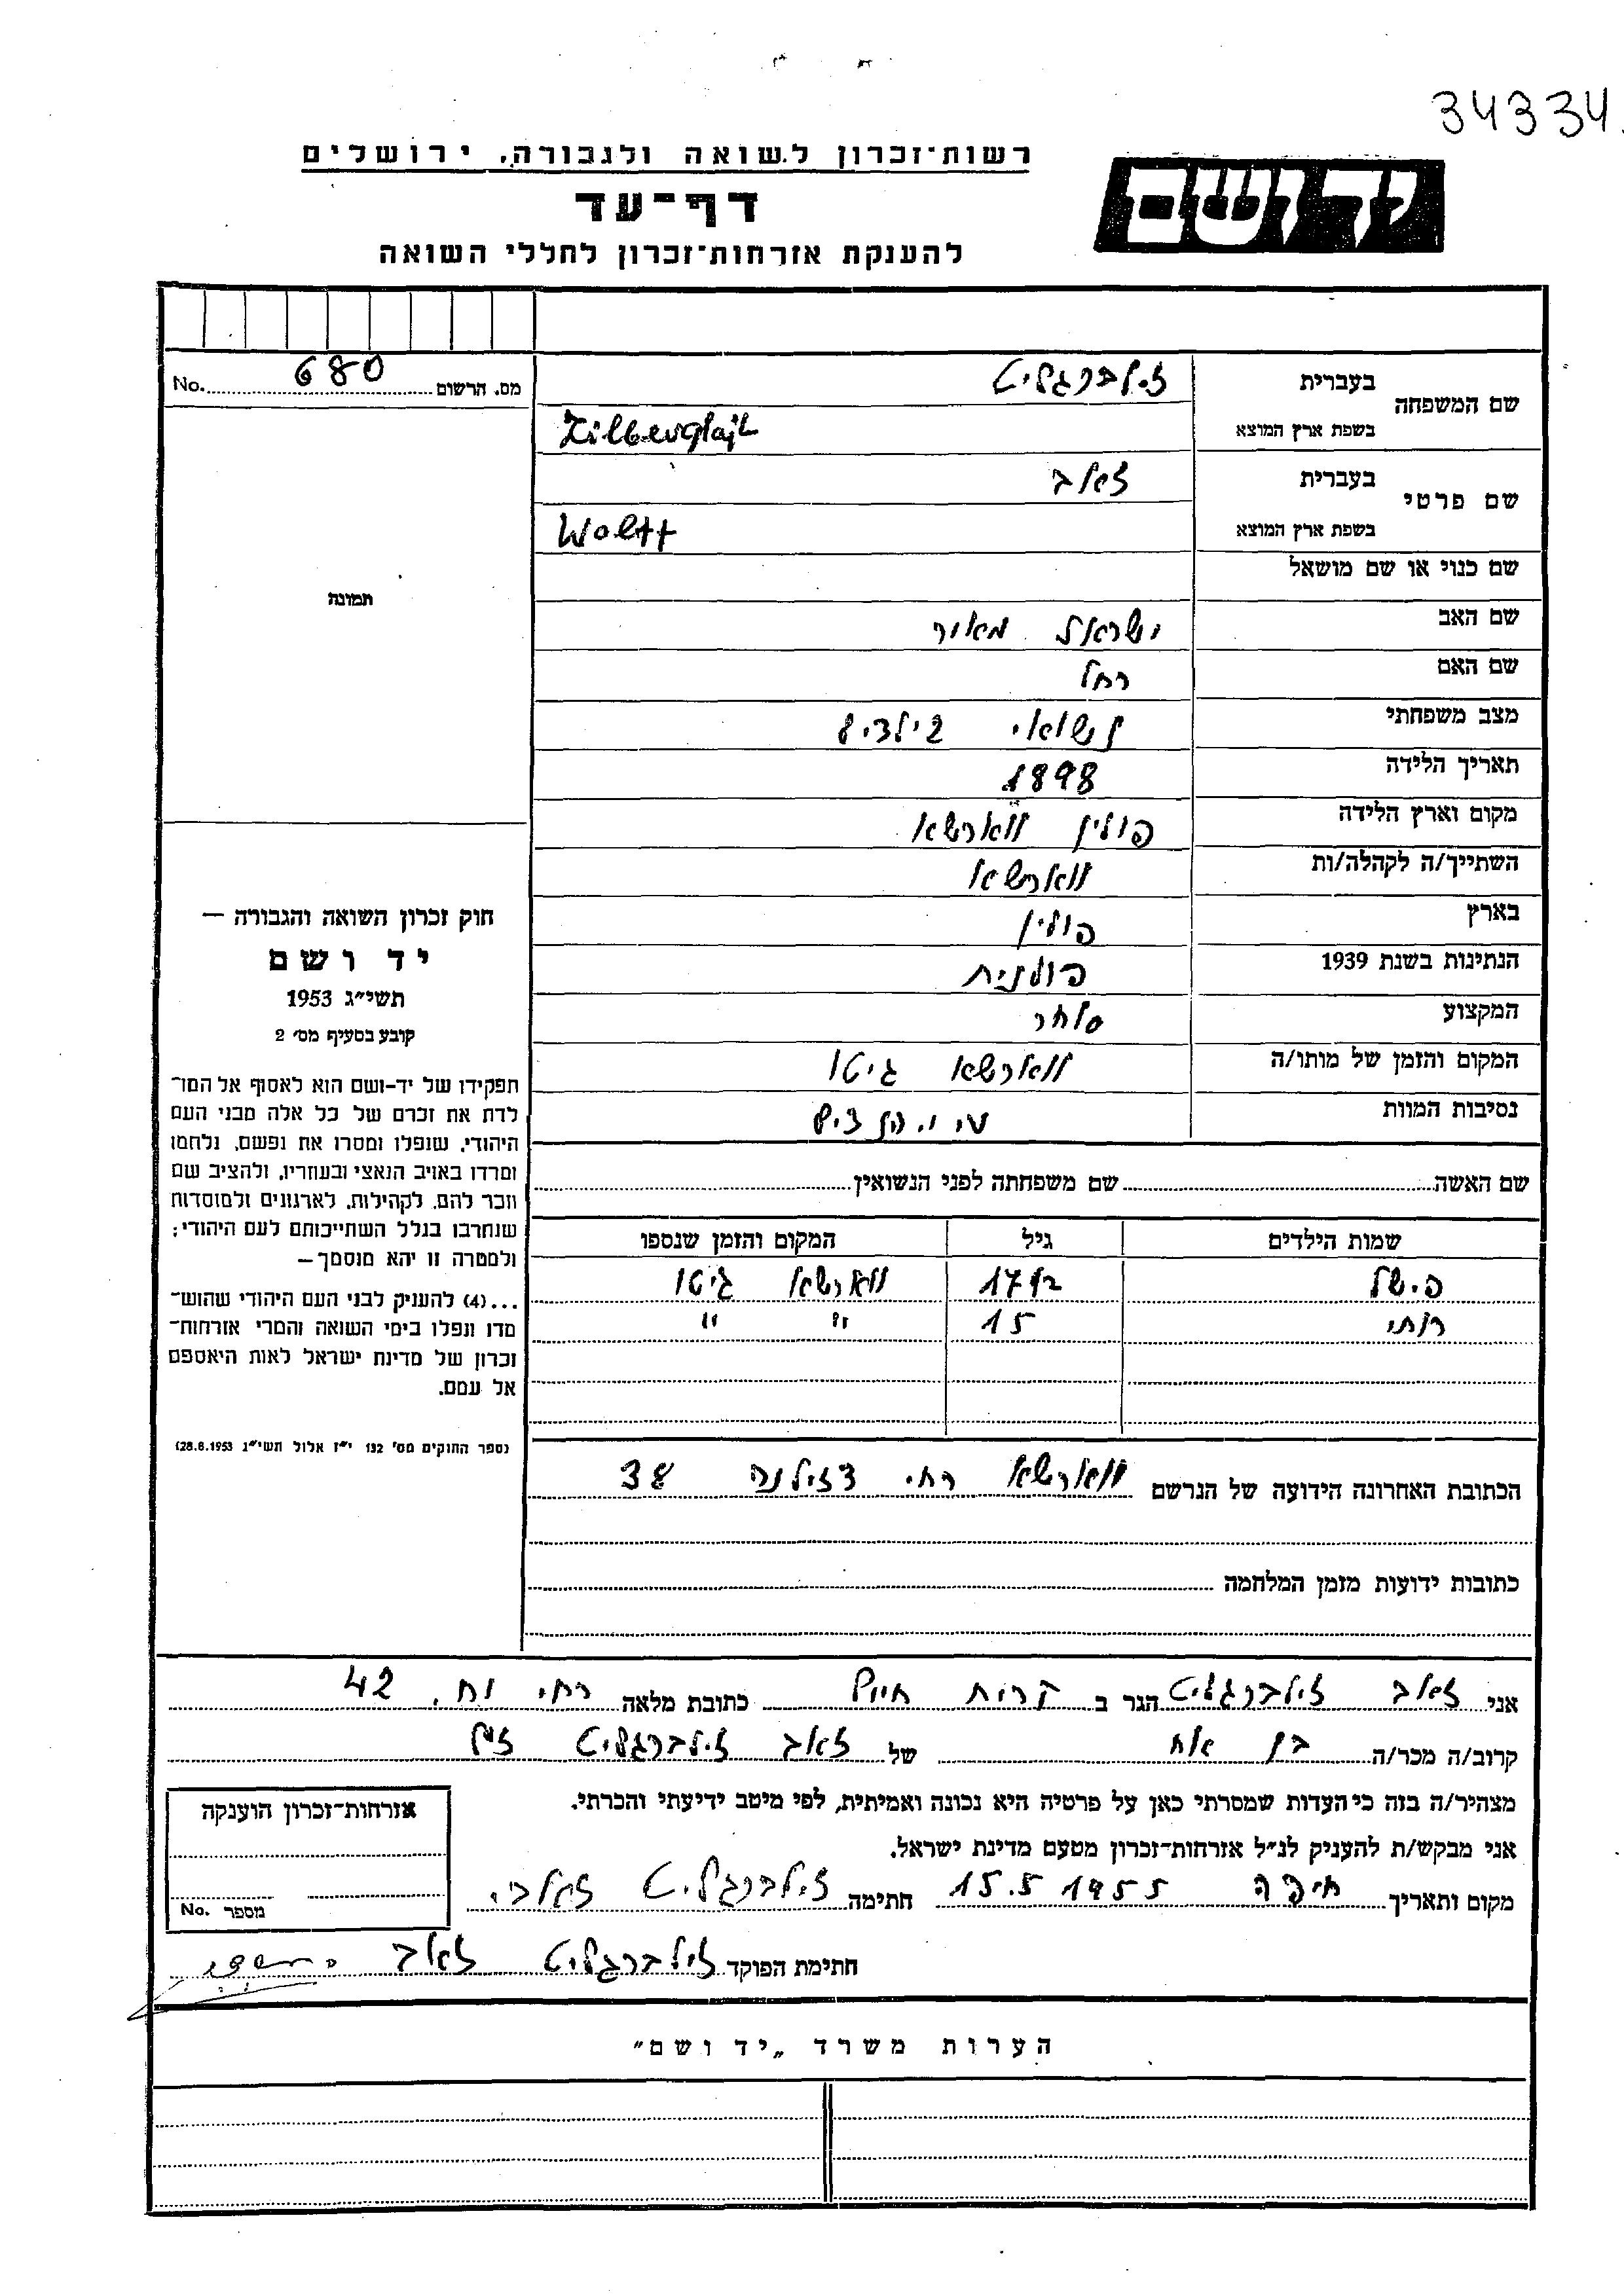 34334
רשות־זכרון לשואה ולגבורה, ירושלים
ידושם
דף־עד
להענקת אזרחות־זכרון לחללי השואה
No. 680 מס. הרשום
תמונה
חוק זכרון השואה והגבורה —
יד ושם
תשי״ג 1953
קובע בסעיף מס׳ 2
תפקידו של יד-ושם הוא לאסוף אל המו־
לדת את זכרם של כל אלה מבני העם
היהודי, שנפלו ומסרו את נפשם, נלחמו
ומרדו באויב הנאצי ובעוזריו, ולהציב שם
וזכר להם, לקהילות, לארגונים ולמוסדות
שנחרבו בגלל השתייכותם לעם היהודי;
ולמטרה זו יהא מוסמך—
...(4) להעניק לבני העם היהודי שהוש־
מדו ונפלו בימי השואה והמרי אזרחות־
זכרון של מדינת ישראל לאות היאספם
אל עמם.
(ספר החוקים מס׳ 132 י״ז אלול תשי״ג 28.8.1953)
שם המשפחה בעברית זילברגלייט
בשפת ארץ המוצא Zilberglajt
שם פרטי בעברית זאב
בשפת ארץ המוצא Wolff
שם כנוי או שם מושאל
שם האב ישראל מאיר
שם האם רחל
מצב משפחתי נשואי 2 ילדים
תאריך הלידה 1898
מקום וארץ הלידה פולין ווארשא
השתייך/ה לקהלה/ות ווארשא
בארץ פולין
הנתינות בשנת 1939 פולנית
המקצוע סוחר
המקום והזמן של מותו/ה ווארשא גיטו
נסיבות המוות
שם האשה שם משפחתה לפני הנשואין
שמות הילדים גיל המקום והזמן שנספו
פישל 17 ווארשא גיטו
רותי 15 " "
הכתובת האחרונה הידועה של הנרשם ווארשא רחי דזילנה 38
כתובות ידועות מזמן המלחמה
אני זאב זילברגלייט הגר ב קרית חיים כתובת מלאה רחי 42
קרוב/ה מכר/ה בן אח של זאב זילברגלייט ז״ל
מצהיר/ה בזה כי העדות שמסרתי כאן על פרטיה היא נכונה ואמיתית, לפי מיטב ידיעתי והכרתי.
אני מבקש/ת להעניק לנ״ל אזרחות־זכרון מטעם מדינת ישראל.
מקום ותאריך חיפה 15.5 1955 חתימה זילברגלייט זאב
חתימת הפוקד זילברגלייט זאב
אזרחות־זכרון הוענקה
No. מספר
הערות משרד „יד ושם״